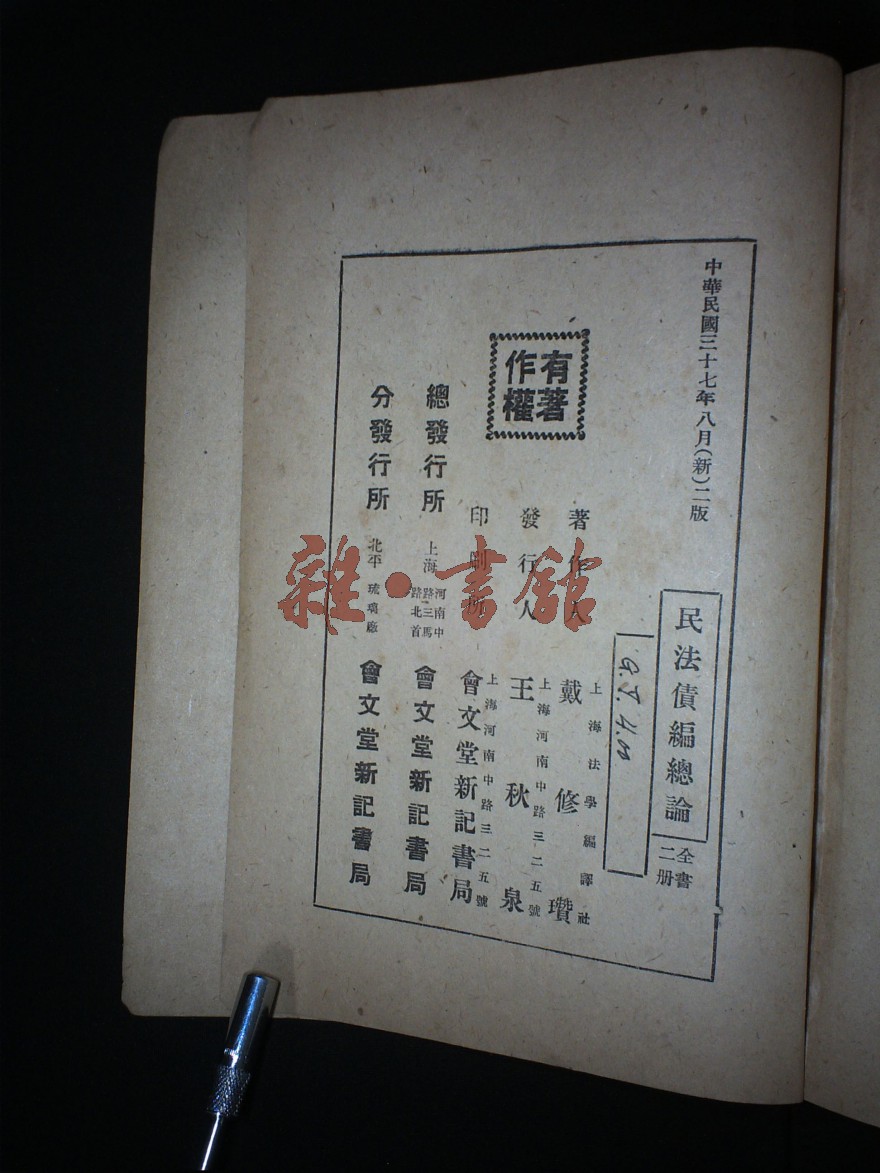 中華民國三十七年八月(新)二版
民法債編總論
全書二册
有著作權
著作人
上海法學編譯社
戴修瓚
發行人
上海河南中路三二五號
王秋泉
印刷所
上海河南中路三二五號
會文堂新記書局
總發行所
上海
河南中路三馬路北首
會文堂新記書局
分發行所
北平
琉璃廠
會文堂新記書局
雜·書館